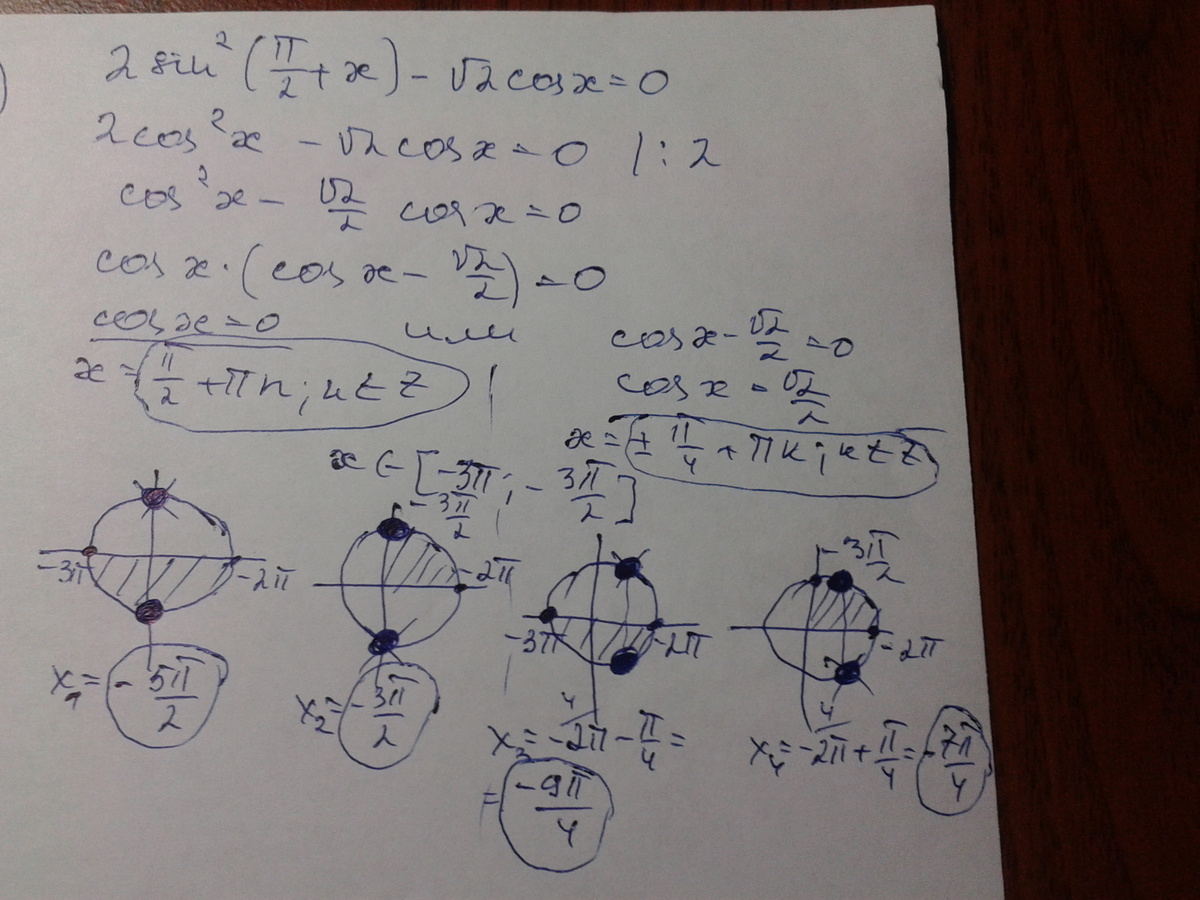 2 sin² (π/2 + x) - √2 cos x = 0
2 cos² x - √2 cos x = 0 | : 2
cos² x - √2/2 cos x = 0
cos x · (cos x - √2/2) = 0
cos x = 0 или cos x - √2/2 = 0
x = π/2 + πn; n ∈ Z | cos x = √2/2
x = ± π/4 + πk; k ∈ Z
x ∈ [-3π; -3π/2]
-3π -2π
-3π/2 -2π
-3π -2π
-3π/2 -2π
x₁ = -5π/2
x₂ = -3π/2
x₃ = -2π - π/4 =
= -9π/4
x₄ = -2π + π/4 = -7π/4